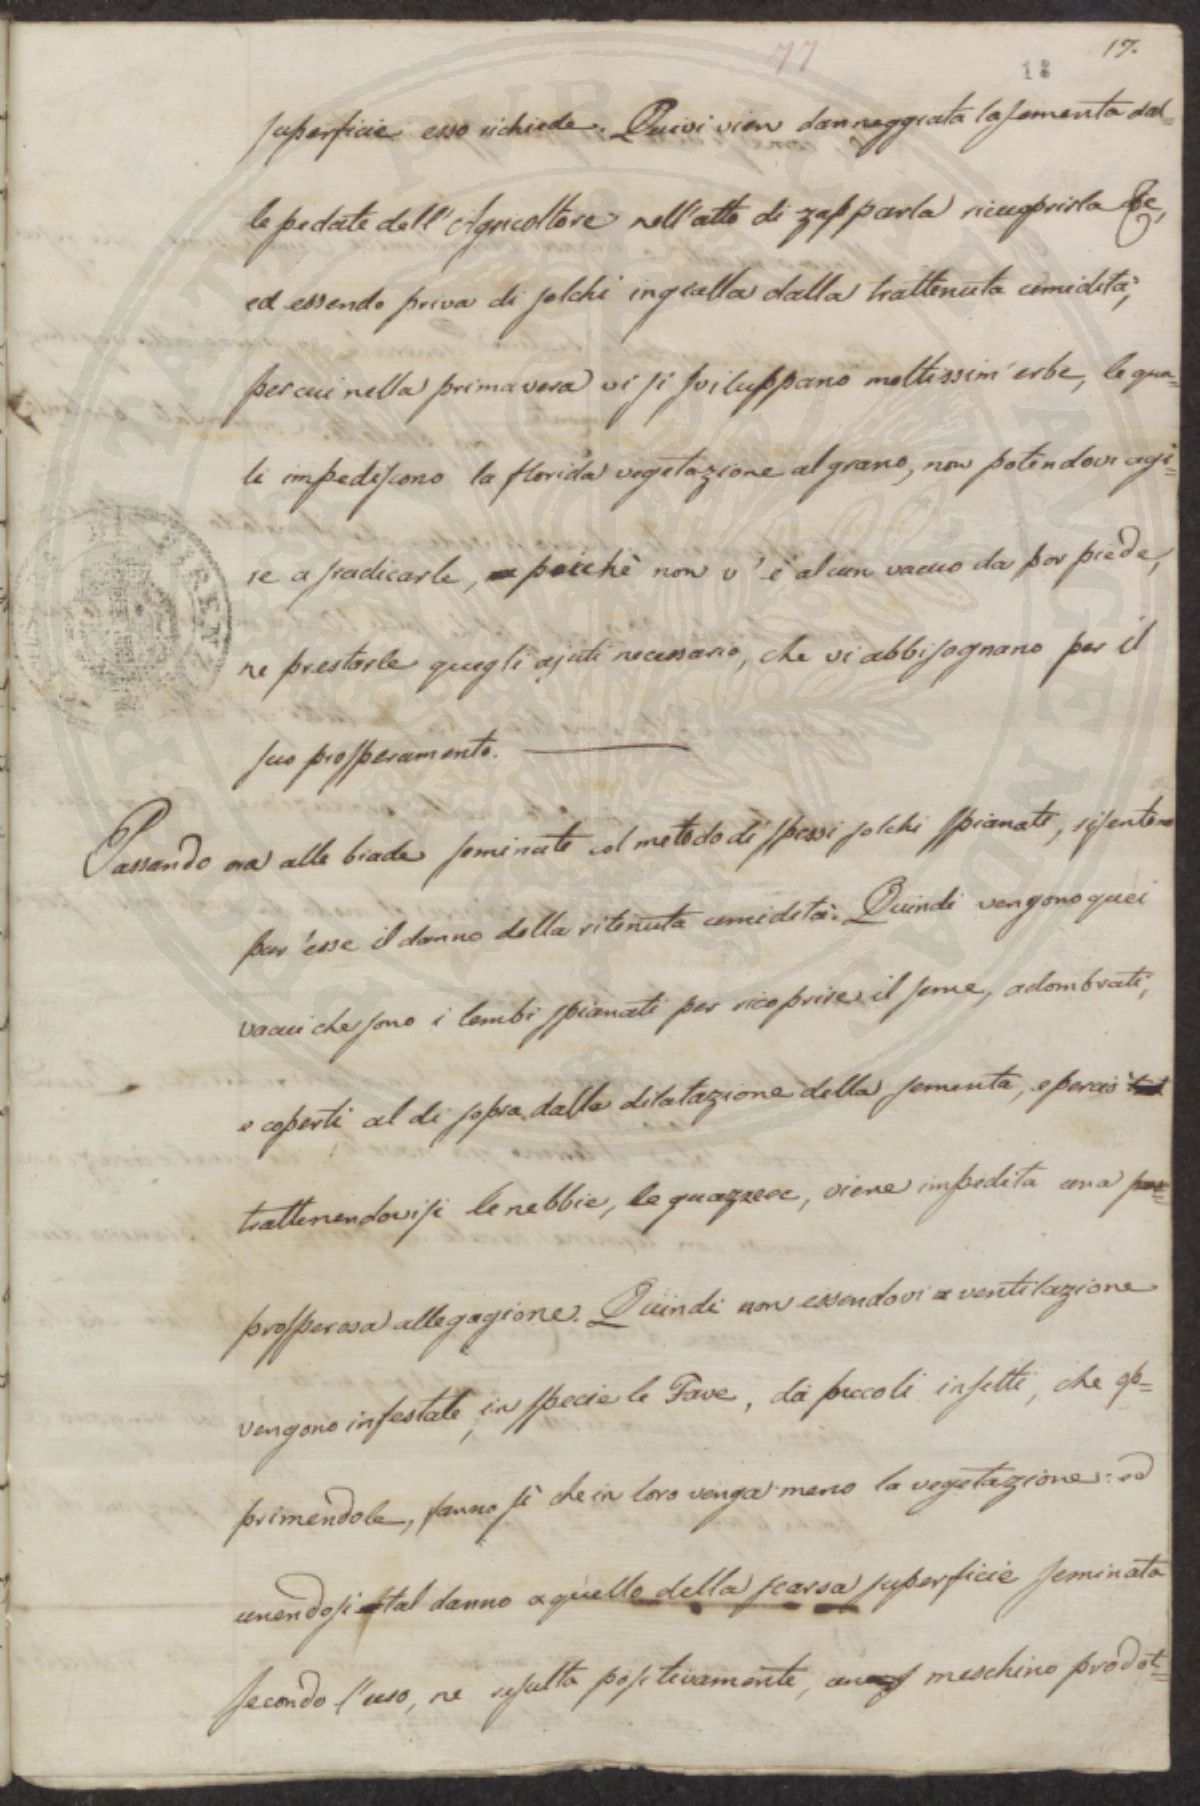 77
17.
12
superficie esso richiede. Quivi vien danneggiata la sementa dal=
le pedate dell'Agricoltore nell'atto di zapparla ricuoprirla &c,
ed essendo priva di solchi ingialla dalla trattenuta umidità,
per cui nella primavera vi si sviluppano moltissim'erbe, le qua=
li impediscono la florida vegetazione al grano, non potendovi agi=
re a sradicarle, poichè non v'è alcun vacuo da por piede,
ne prestarle quegli ajuti necessario, che vi abbisognano per il
suo prosperamento.
Passando ora alle biade seminate col metodo di spessi solchi spianati, risentono
pur'esse il danno della ritenuta umidità. Quindi vengono quei
vacui che sono i lembi spianati per ricoprire il seme, adombrati,
e coperti al di sopra dalla dilatazione della sementa, e perciò
trattenendovisi le nebbie, le guazze, viene impedita una
prosperosa allegagione. Quindi non essendovi ventilazione
vengono infestate, in specie le Fave, da piccoli insetti, che op=
primendole, fanno sì che in loro venga meno la vegetazione: ed
unendosi tal danno a quello della scarsa superficie seminata
secondo l'uso, ne resulta positivamente, un meschino prodot=